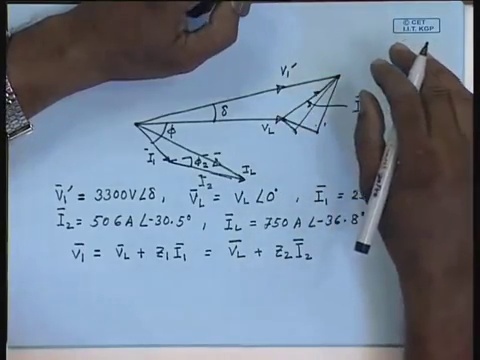 © CET
I.I.T. KGP
V̄₁'
δ
V_L
Ī
φ
Ī₁
φ₂
Ī₂
I_L
V̄₁' = 3300V∠δ, V̄_L = V_L ∠0°, Ī₁ = 2
Ī₂ = 506 A ∠-30.5°, Ī_L = 750 A ∠-36.8°
V̄₁ = V̄_L + Z₁Ī₁ = V̄_L + Z₂Ī₂